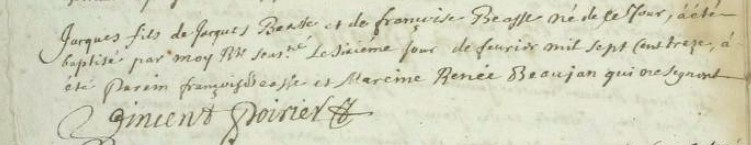 Jacques fils de Jacques Beasse et de françoise Beasse né de ce Jour, a été
baptisé par moy Ptre sous.né Le sixième jour de feuvrier mil sept Cent treze, a
été Parein françois Beasse et Mareine Renée Beaujan qui ne signent
Vincent Poirier